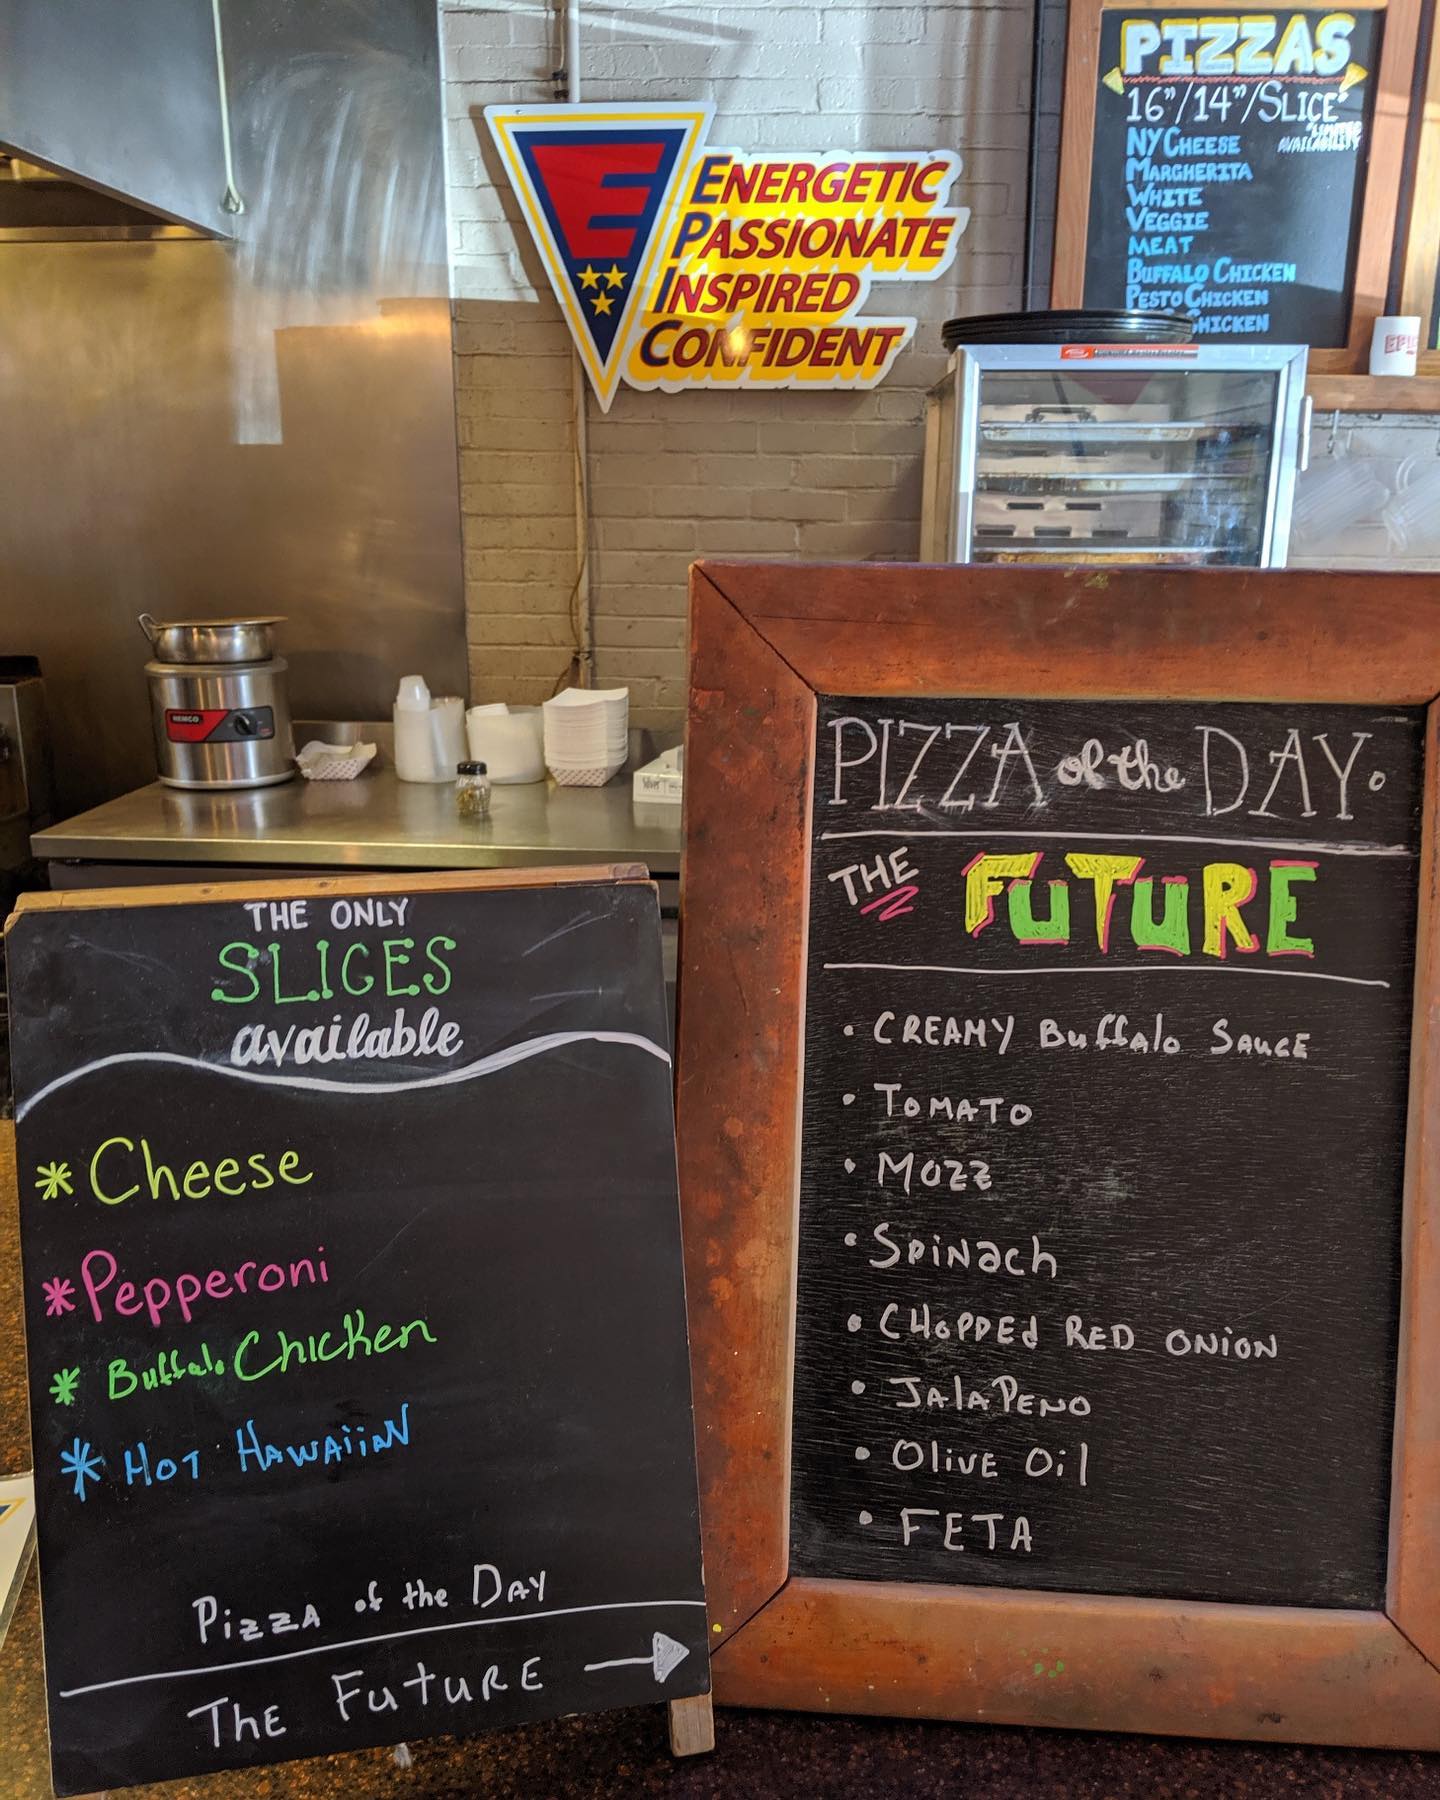 PIZZAS
16"/14"/SLICE*
*LIMITED
AVAILABILITY
NY CHEESE
MARGHERITA
WHITE
VEGGIE
MEAT
BUFFALO CHICKEN
PESTO CHICKEN
CHICKEN
E
ENERGETIC
PASSIONATE
INSPIRED
CONFIDENT
EPIC
NEMCO
PIZZA of the DAY.
THE FUTURE
• CREAMY Buffalo SAUCE
• TOMATO
• MOZZ
• SPINach
• CHOPPEd RED ONION
• JAlAPENO
• OlivE Oil
• FETA
THE ONLY
SLICES
available
* Cheese
* Pepperoni
* Buffalo Chicken
* HOT HAWAiiAN
PizzA of the DAY
ThE FuturE →